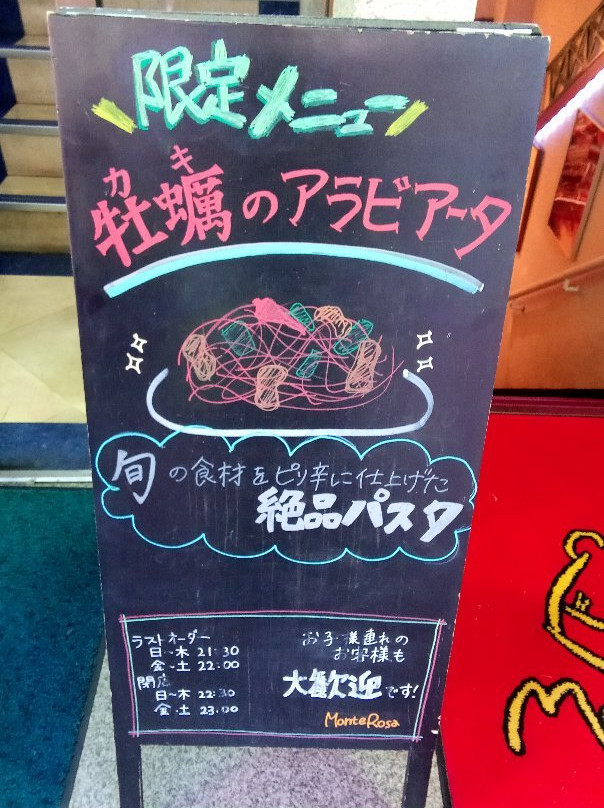 限定メニュー
カキ
牡蠣のアラビアータ
旬の食材をピリ辛に仕上げた
絶品パスタ
ラストオーダー
日~木 21:30
金・土 22:00
閉店
日~木 22:30
金・土 23:00
お子様連れの
お客様も
大歓迎です!
MonteRosa